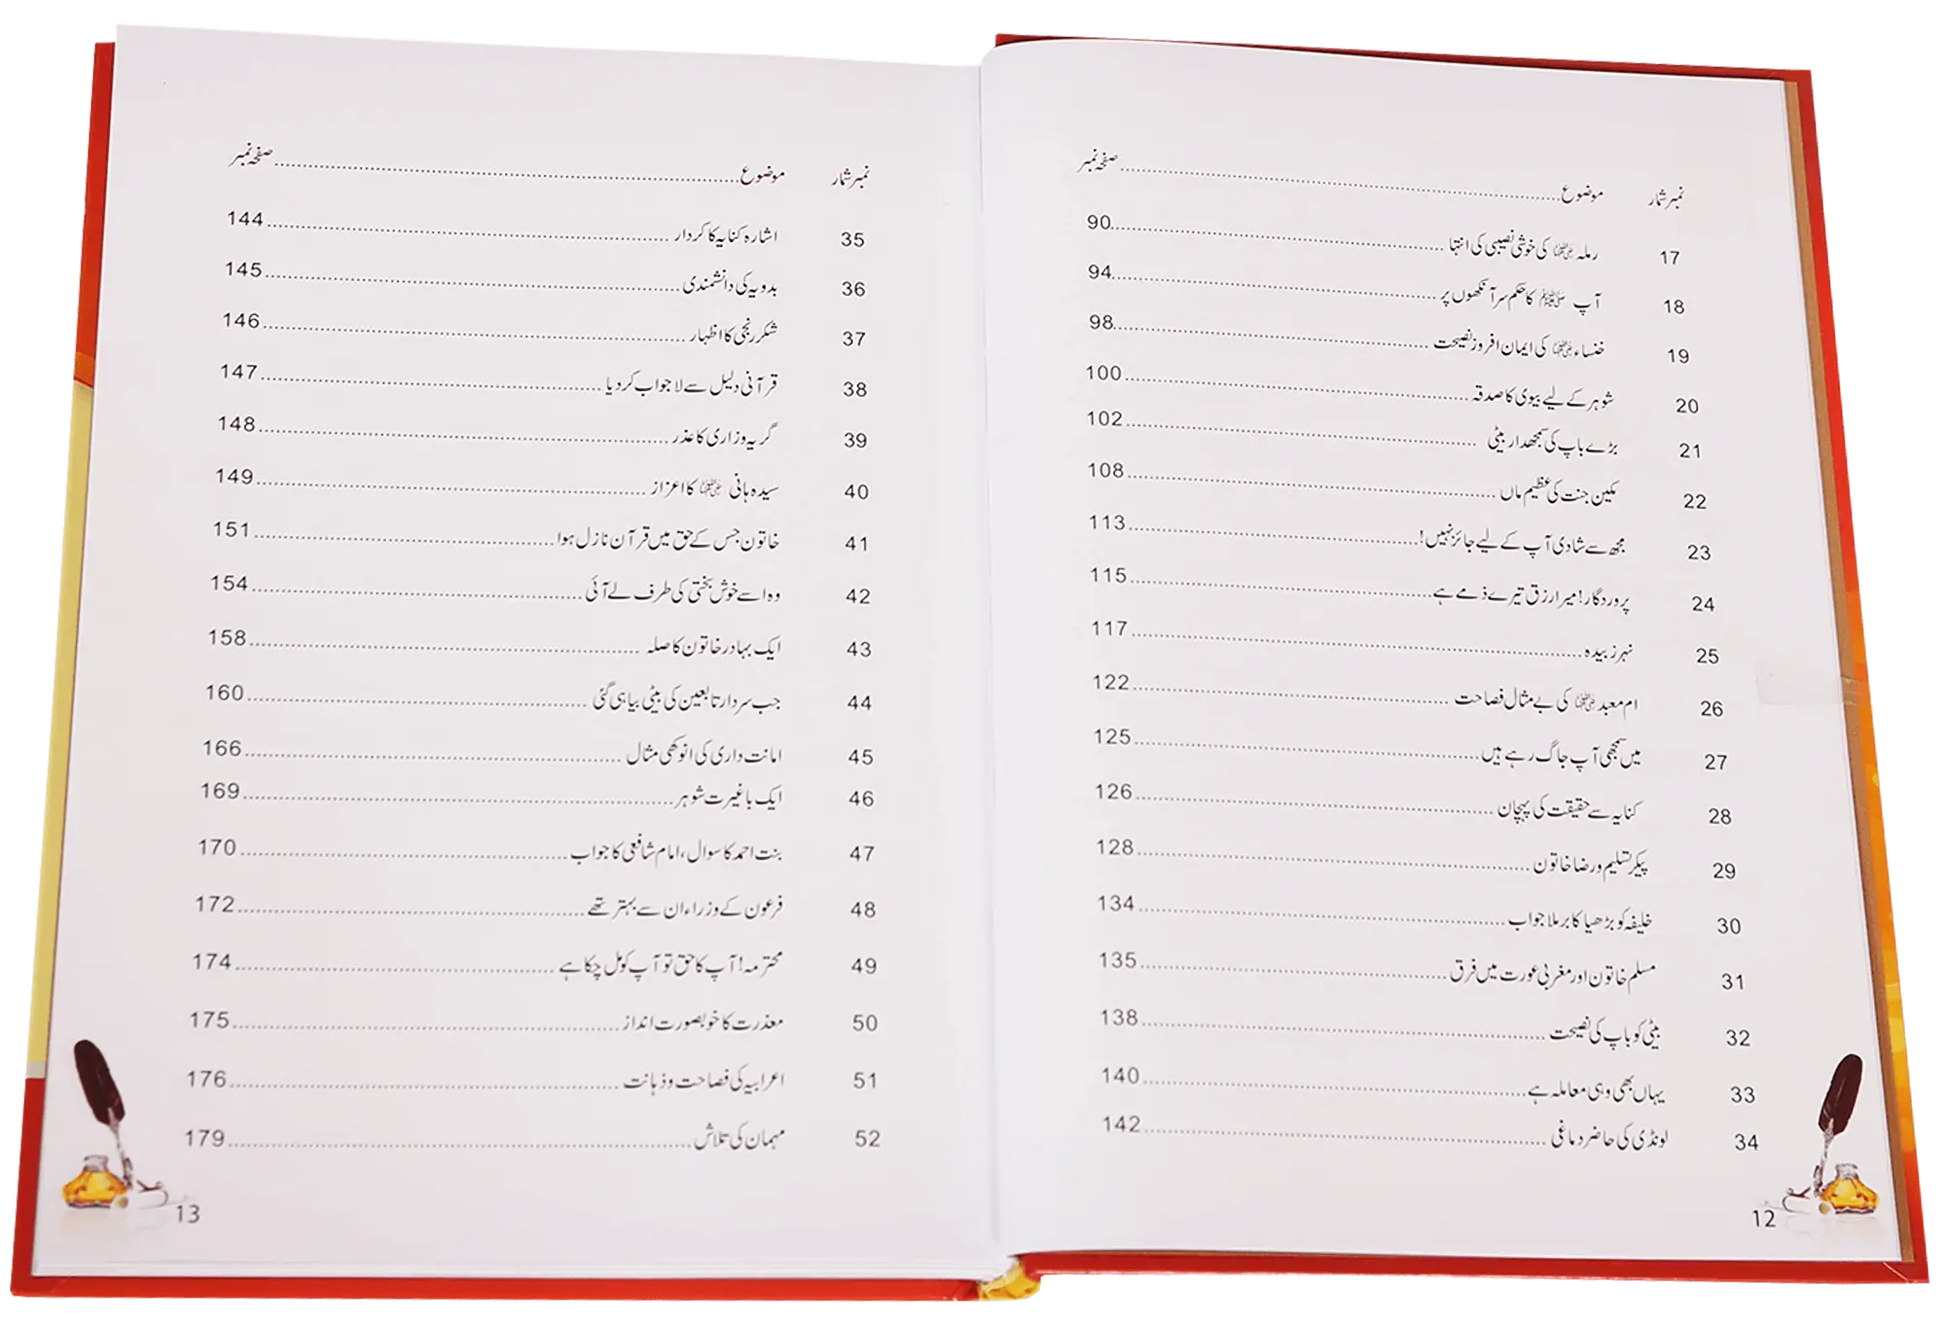 نمبر شمار موضوع........................صفحہ نمبر
17 رملہ رضی اللہ عنہا کی خوش نصیبی کی انتہا........................90
18 آپ ﷺ کا حکم سر آنکھوں پر........................94
19 خنساء رضی اللہ عنہا کی ایمان افروز نصیحت........................98
20 شوہر کے لیے بیوی کا صدقہ........................100
21 بڑے باپ کی سمجھدار بیٹی........................102
22 مکین جنت کی عظیم ماں........................108
23 مجھ سے شادی آپ کے لیے جائز نہیں!........................113
24 پروردگار! میرا رزق تیرے ذمے ہے........................115
25 نہر زبیدہ........................117
26 ام معبد رضی اللہ عنہا کی بے مثال فصاحت........................122
27 میں سمجھی آپ جاگ رہے ہیں........................125
28 کنایہ سے حقیقت کی پہچان........................126
29 پیکر تسلیم و رضا خاتون........................128
30 خلیفہ کو بڑھیا کا برملا جواب........................134
31 مسلم خاتون اور مغربی عورت میں فرق........................135
32 بیٹی کو باپ کی نصیحت........................138
33 یہاں بھی وہی معاملہ ہے........................140
34 لونڈی کی حاضر دماغی........................142
12
نمبر شمار موضوع........................صفحہ نمبر
35 اشارہ کنایہ کا کردار........................144
36 بدویہ کی دانشمندی........................145
37 شکر رنجی کا اظہار........................146
38 قرآنی دلیل سے لاجواب کر دیا........................147
39 گریہ وزاری کا عذر........................148
40 سیدہ ہانی رضی اللہ عنہا کا اعزاز........................149
41 خاتون جس کے حق میں قرآن نازل ہوا........................151
42 وہ اسے خوش بختی کی طرف لے آئی........................154
43 ایک بہادر خاتون کا صلہ........................158
44 جب سردار تابعین کی بیٹی بیاہی گئی........................160
45 امانت داری کی انوکھی مثال........................166
46 ایک باغیرت شوہر........................169
47 بنت احمد کا سوال، امام شافعی کا جواب........................170
48 فرعون کے وزراء ان سے بہتر تھے........................172
49 محترمہ! آپ کا حق تو آپ کو مل چکا ہے........................174
50 معذرت کا خوبصورت انداز........................175
51 اعرابیہ کی فصاحت و ذہانت........................176
52 مہمان کی تلاش........................179
13